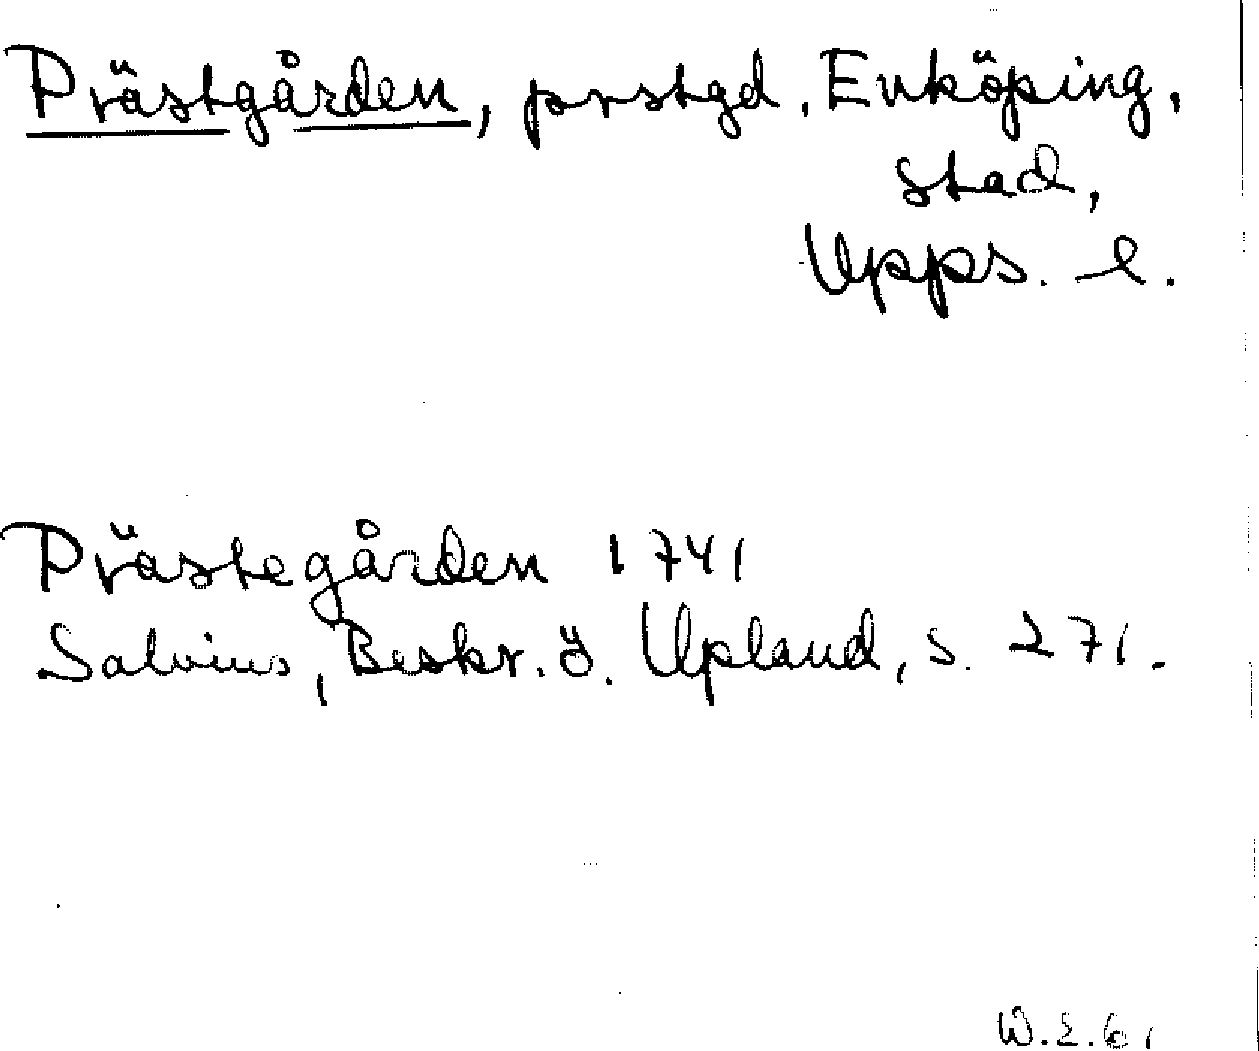 Prästgården, prstgd. Enköping,
stad,
Upps. l.
Prästegården 1741
Salvius, Beskr. ö. Upland, s. 271.
W.E.61